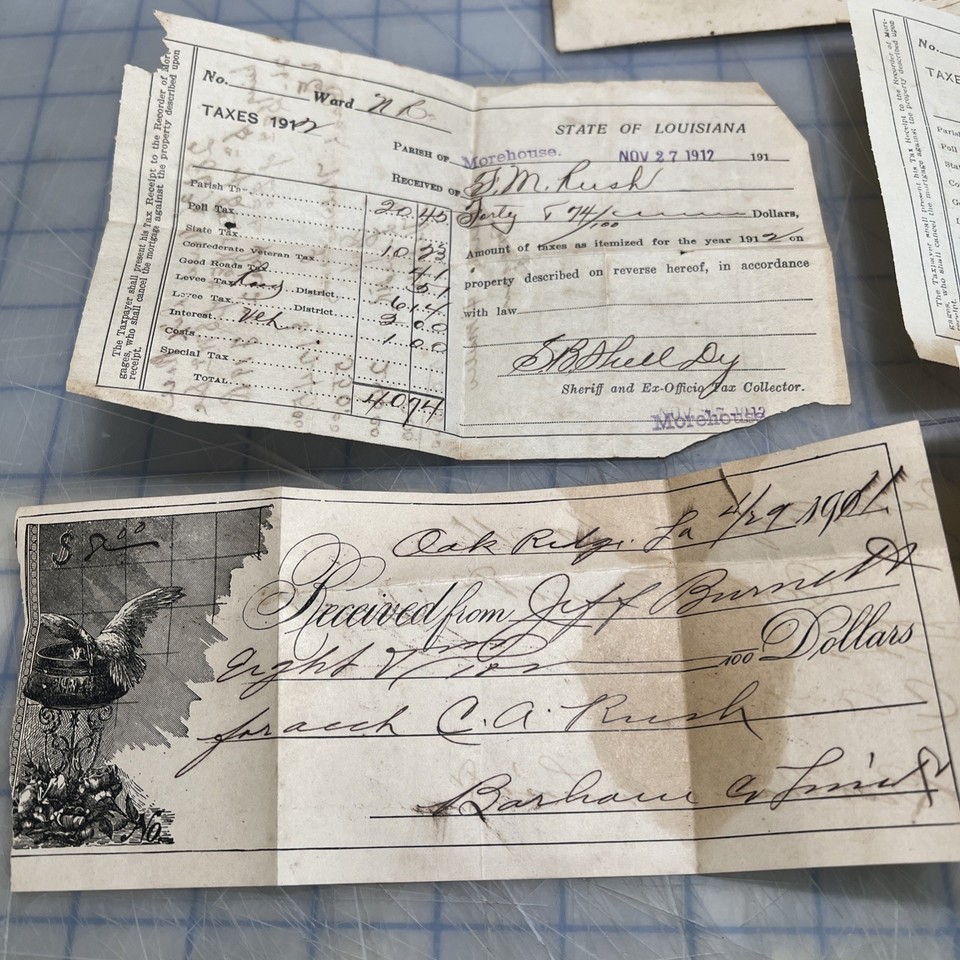 The Taxpayer shall present his Tax Receipt to the Recorder of Mort-
gages, who shall cancel the mortgage against the property described upon
receipt.
No. Ward
TAXES 1912
Parish Ta
Poll Tax
State Tax
Confederate Veteran Tax
Good Roads Tax
Levee Tax District
Levee Tax District
Interest
Costs
Special Tax
TOTAL
20.45
10.23
41
51
6.14
2.00
1.00
40.74
STATE OF LOUISIANA
PARISH OF Morehouse. NOV 27 1912 191
RECEIVED OF M. Rush
Forty & 74/100 Dollars,
Amount of taxes as itemized for the year 1912 on
property described on reverse hereof, in accordance
with law
Shell Dy
Sheriff and Ex-Officio Tax Collector.
Morehouse
$ 8.00
Oak Ridge. La 4/29 1911.
Received from Jeff Burnett
Eight & no 100 Dollars
for acct C. A. Rush
Barham &
No.
No.
TAXE
Paris
Poll
Sta
Co
G
L
The Taxpayer shall present his Tax Receipt to the Recorder of Mort-
gages, who shall cancel the mortgage against the property described upon
receipt.